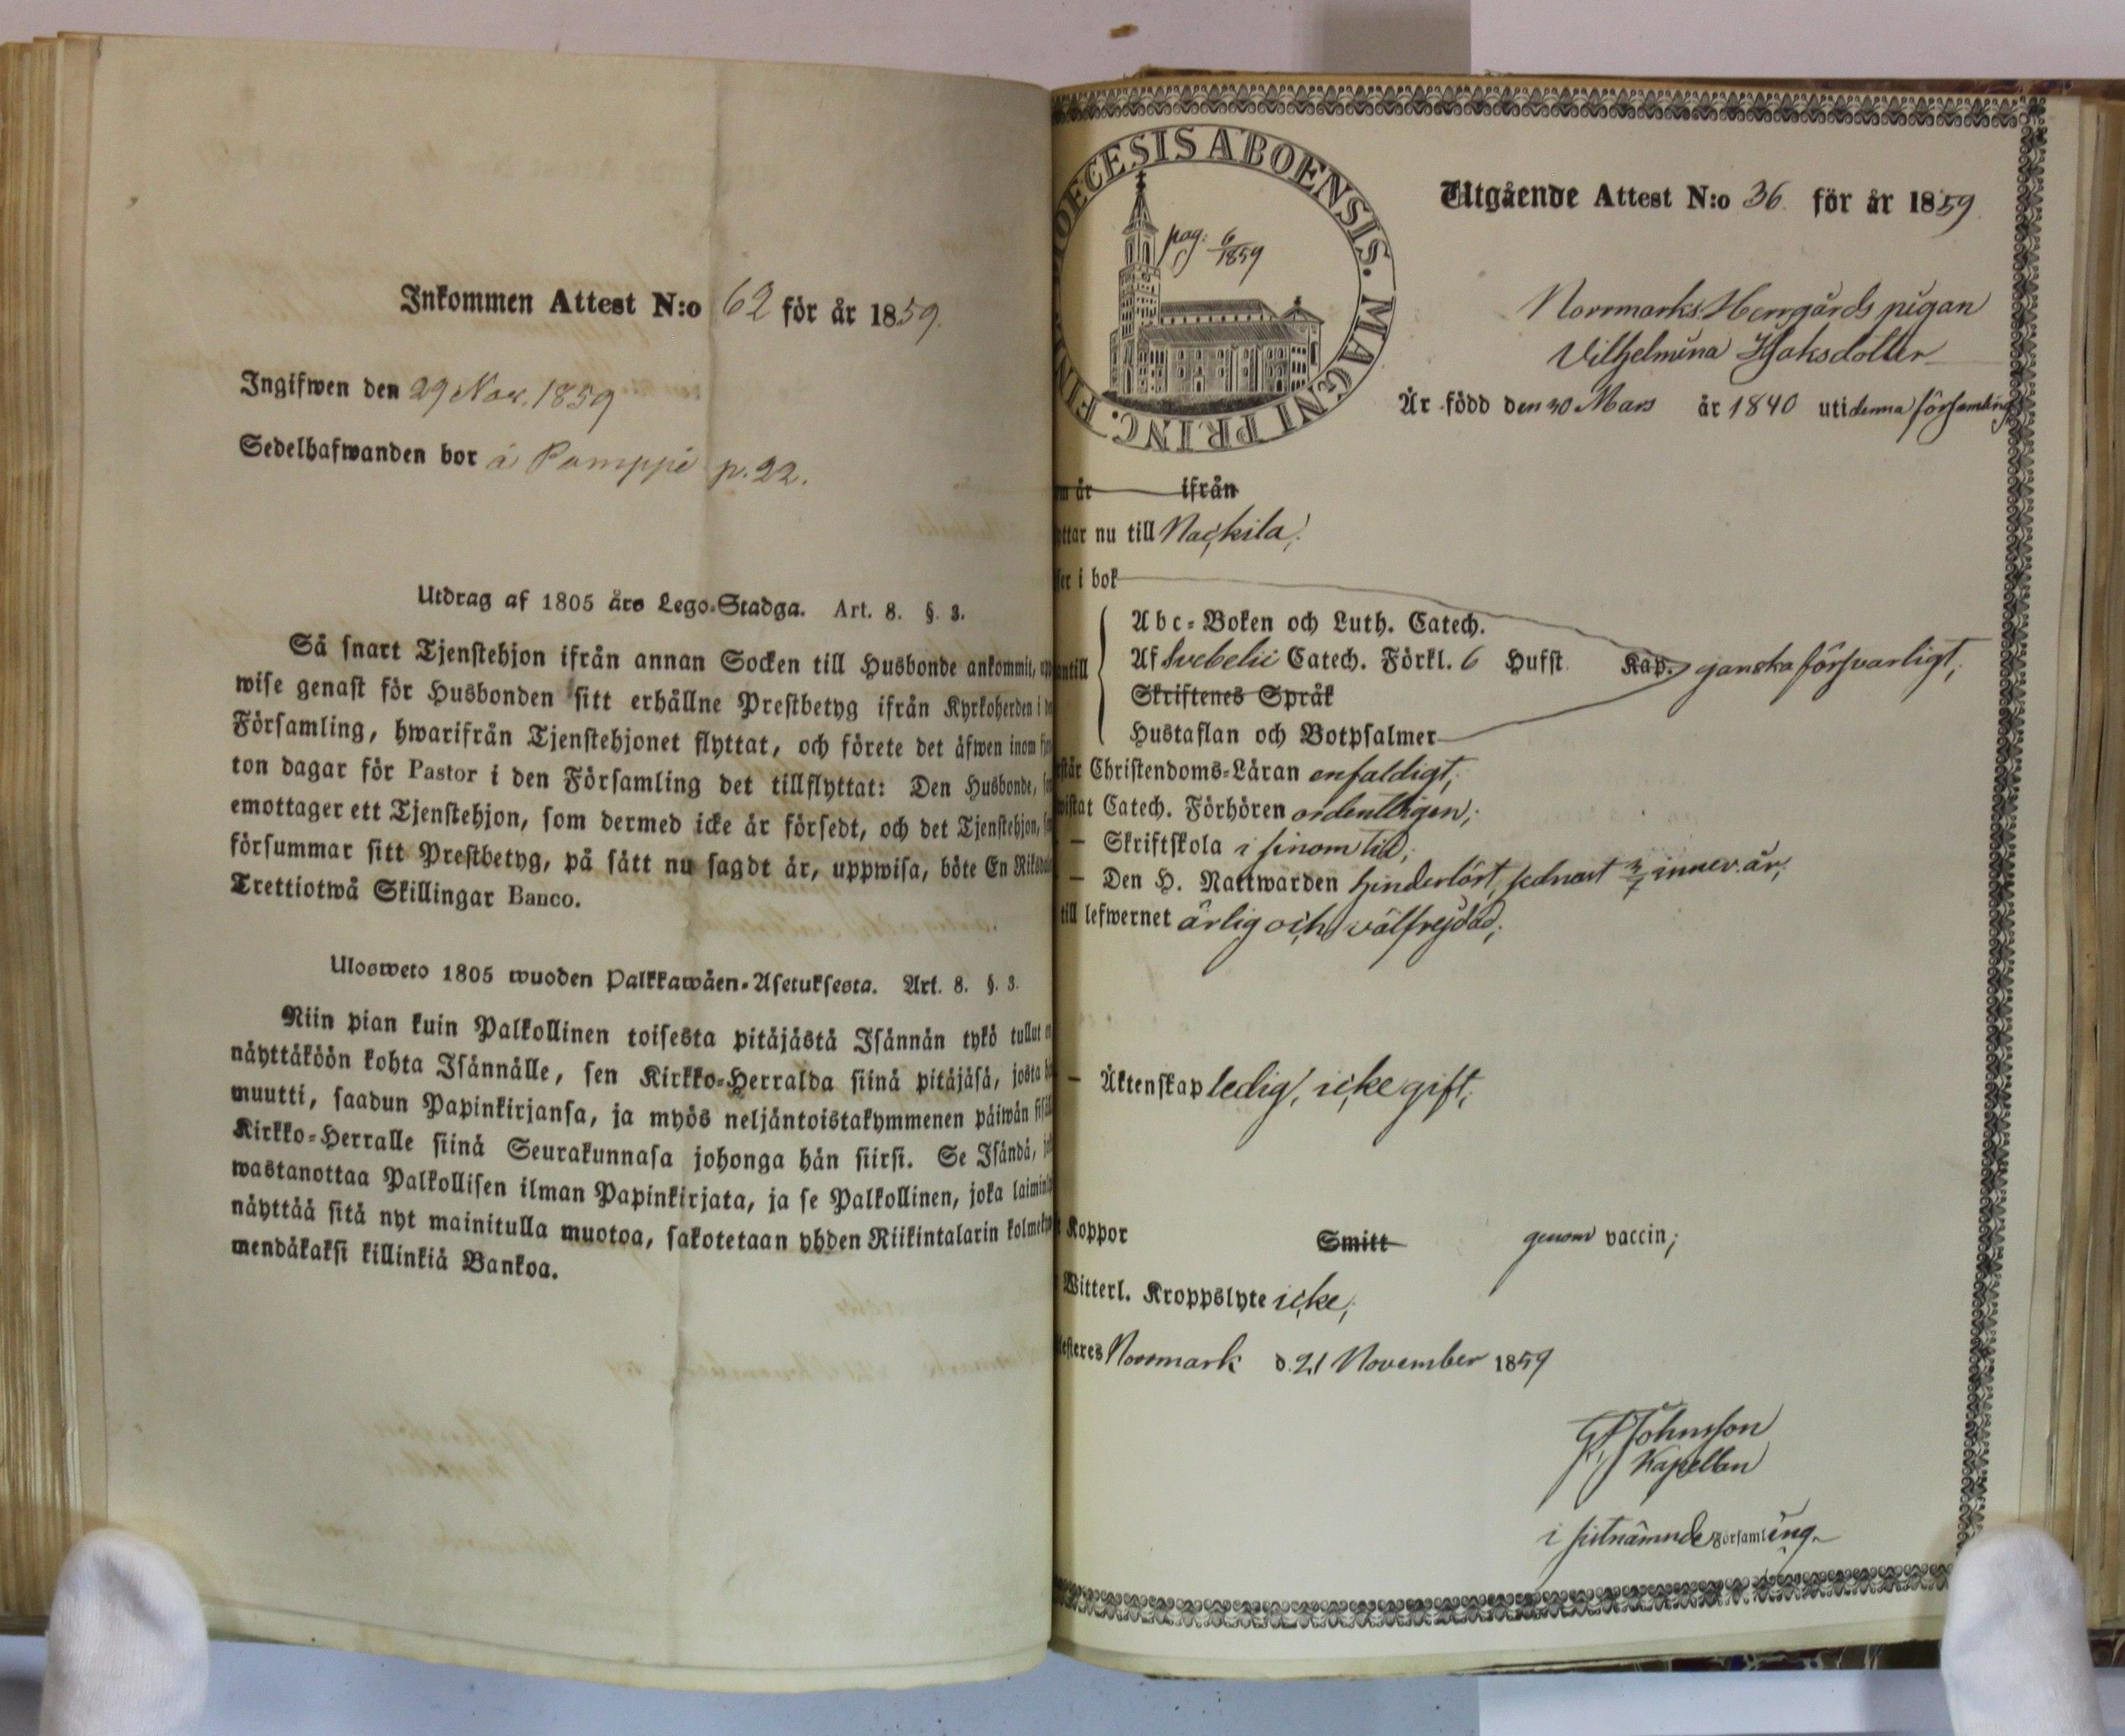 Inkommen Attest N:o 62 för år 1859.
Ingifwen den 29 Nov. 1859
Sedelhafwanden bor å Pamppi p. 22.
Utdrag af 1805 års Lego-Stadga. Art. 8. §. 3.
Så snart Tjenstehjon ifrån annan Socken till Husbonde ankommit, upp
wise genast för Husbonden sitt erhållne Prestbetyg ifrån Kyrkoherden i
Församling, hwarifrån Tjenstehjonet flyttat, och förete det äfwen inom
ton dagar för Pastor i den Församling det tillflyttat: Den Husbonde,
emottager ett Tjenstehjon, som dermed icke är försedt, och det Tjenstehjon,
försummar sitt Prestbetyg, på sätt nu sagdt är, uppwisa, böte En Riksdal
Trettiotwå Skillingar Banco.
Ulosweto 1805 wuoden Palkkawäen-Asetuksesta. Art. 8. §. 3.
Niin pian kuin Palkollinen toisesta pitäjästä Isännän tykö tullut
näyttäköön kohta Isännälle, sen Kirkko-Herralda siinä pitäjäsä, josta
muutti, saadun Papinkirjansa, ja myös neljäntoistakymmenen päiwän
Kirkko-Herralle siinä Seurakunnasa johonga hän siirsi. Se Isändä,
wastanottaa Palkollisen ilman Papinkirjata, ja se Palkollinen, joka
näyttää sitä nyt mainitulla muotoa, sakotetaan yhden Riikintalarin
mendäkaksi killinkiä Bankoa.
DIOECESIS ABOENSIS. MAGNI PRINC. FINL.
pag: 6/1859
Utgående Attest N:o 36. för år 1859.
Norrmarks Herrgårds pigan
Vilhelmina Isaksdotter
Är född den 30 Mars år 1840 uti denna församling
år ifrån
ttar nu till Nackila;
ser i bok
Abc-Boken och Luth. Catech.
antill Af Svebelii Catech. Förkl. 6 Hufst. Kap. ganska försvarligt;
Skriftenes Språk
Hustaflan och Botpsalmer
står Christendoms-Läran enfaldigt;
wistat Catech. Förhören ordentligen;
— Skriftskola i sinom tid;
— Den H. Nattwarden hinderlöst, sednast 3/7 innev. år;
till lefwernet ärlig och välfrejdad;
— Äktenskap ledig, icke gift;
Koppor Smitt genom vaccin;
Witterl. Kroppslyte icke;
testeres Norrmark d. 21 November 1859
Johnsson
Kapellan
i sistnämnde Församling.